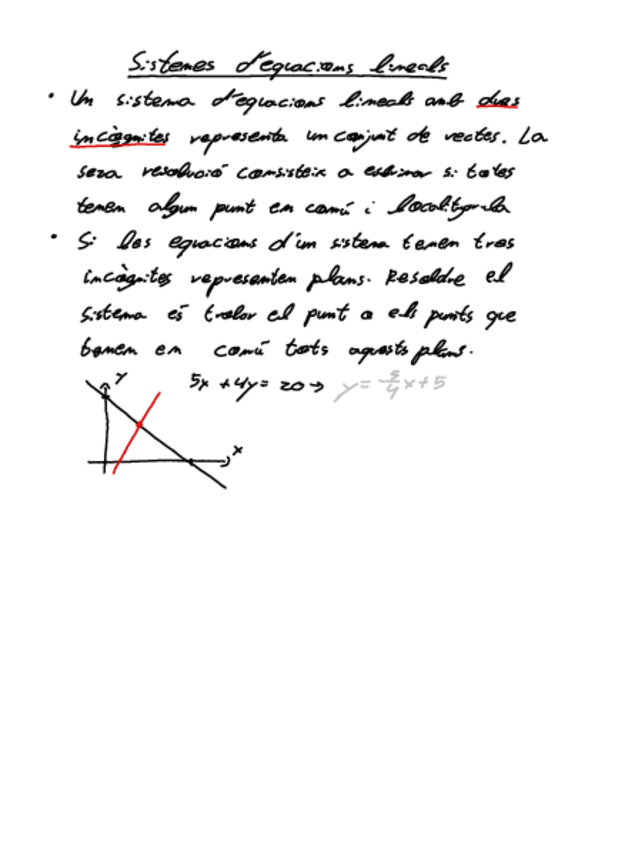 Sistemes d'equacions lineals
• Un sistema d'equacions lineals amb dues
incògnites representa un conjunt de rectes. La
seva resolució consisteix a esbrinar si totes
tenen algun punt en comú i localitzar-la
• Si les equacions d'un sistema tenen tres
incògnites representen plans. Resoldre el
sistema és trobar el punt o els punts que
tenen en comú tots aquests plans.
y 5x + 4y = 20 → y = -5/4 x + 5
x